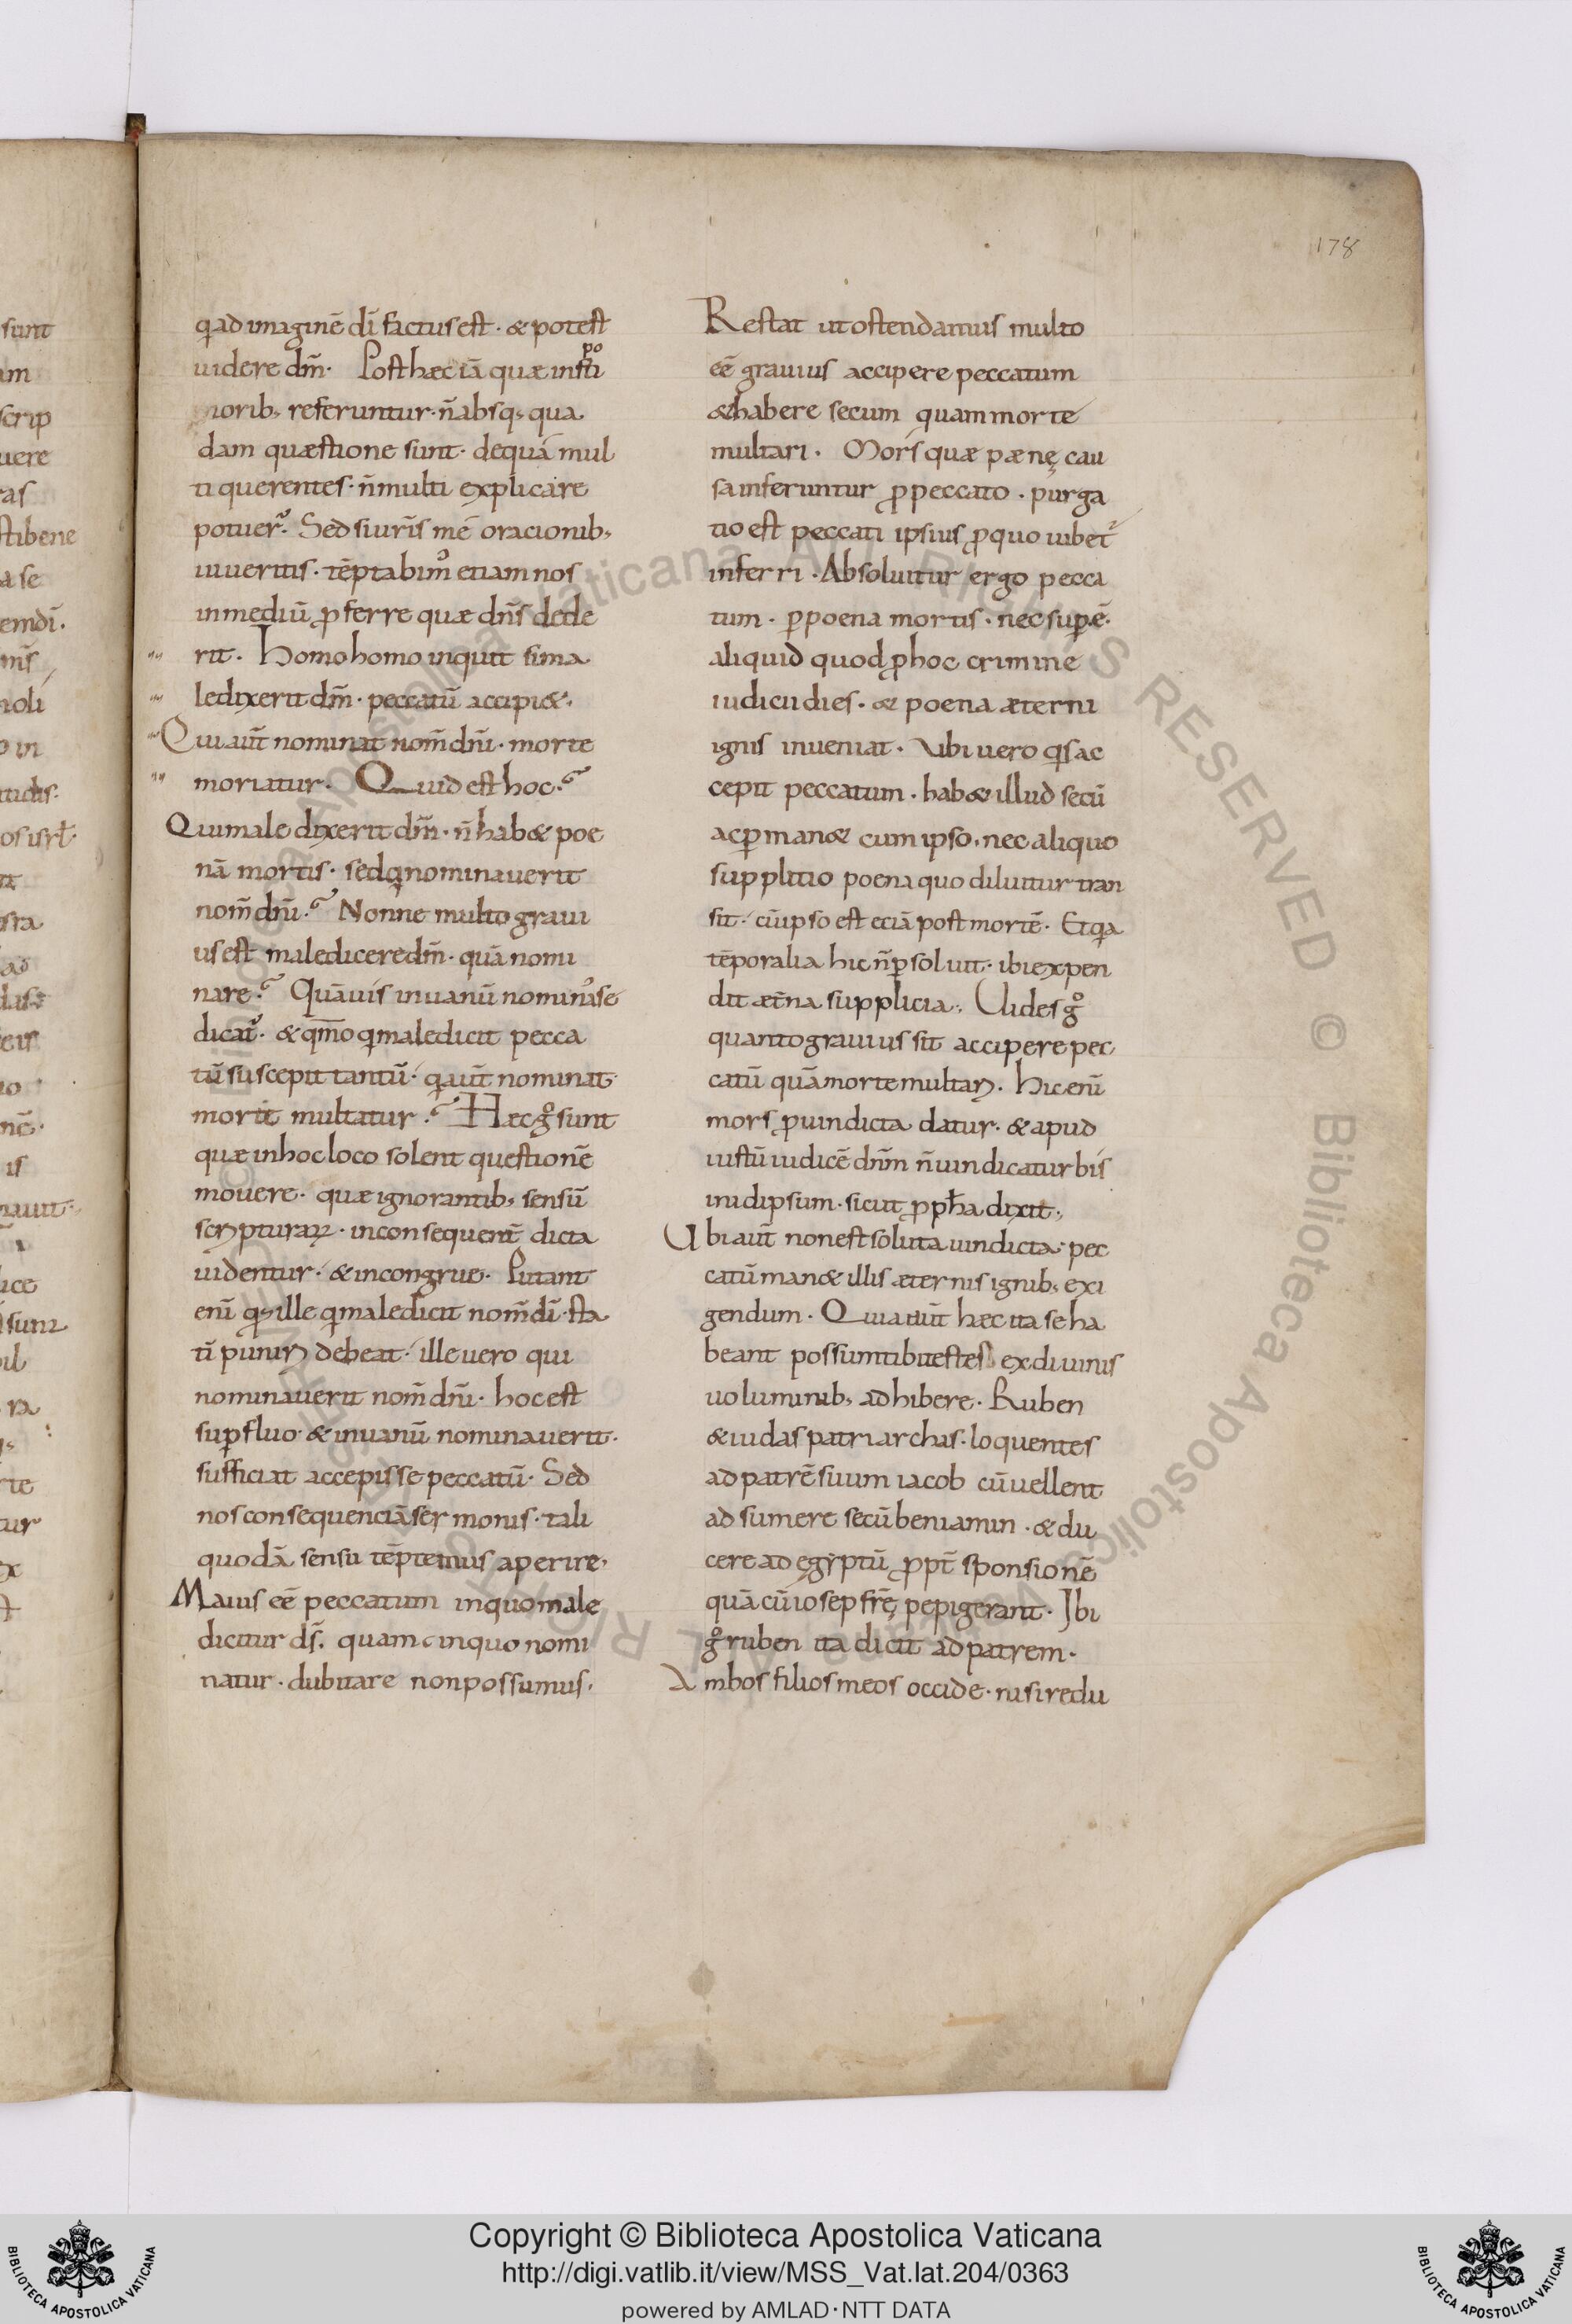 178
q ad imaginē dī factus est · & potest
uidere dm̄ · Post hæc iā quæ infti
po
norib; referuntur · n̄ absq; qua
dam quæstione sunt · de quá mul
ti querentes · n̄ multi explicare
potuer̃ · Sed si ur̄is mē oracionib;
iuueritis · tēptabim᷒ etiam nos
in mediū ꝓferre quæ dn̄s dede
rit · Homo homo inquit si ma
ledixerit dm̄ · peccatū accipi&·
Qui aūt nominat nom̄ dn̄i · morte
moriatur · Quid est hoc?
Qui male dixerit dm̄ · n̄ hab& poe
nā mortis · sed q nominauerit
nom̄ dn̄i? Nonne multo graui
us est maledicere dm̄ · quā nomi
nare? Quāuis in uanū nominasse
dicat᷒ · & qm̄o q maledicit pecca
tū suscepit tantū · q aūt nominat·
morte multatur? Hæc gͦ sunt
quæ in hoc loco solent questionē
mouere · quæ ignorantib; sensū
scripturarꝝ · inconsequent̄ dicta
uidentur · & incongrue · Putant
enī qd ille q maledicit nom̄ dī · sta
tī puniri debeat · ille uero qui
nominauerit nom̄ dn̄i · hoc est
suꝑfluo · & in uanū nominauerit·
sufficiat accepisse peccatū · Sed
nos consequenciā sermonis · tali
quodā sensu tēptemus aperire·
Maius eē peccatum in quo male
dicitur ds̄. quam in quo nomi
natur · dubitare non possumus·
Restat ut ostendamus multo
eē grauius accipere peccatum
& habere secum quam morte
multari · Mors quæ pænę cau
sa inferuntur ꝓ peccato · purga
tio est peccati ipsius ꝓ quo iubet᷒
inferri · Absoluitur ergo pecca
tum · ꝑ poena mortis · nec suꝑ ē·
aliquid quod ꝓ hoc crimine
iudicii dies · & poena æterni
ignis inueniat · Ubi uero qs ac
cepit peccatum · hab& illud secū
ac ꝑman& cum ipso · nec aliquo
supplitio poena quo diluitur tran
sit · cū ipso est eciā post mortē · Et qa
tēporalia hic n̄ ꝑsoluit · ibi expen
dit æt̄na supplicia · Uides gͦ
quanto grauius sit accipere pec
catū quā morte multari · Hic enī
mors ꝓ uindicta datur · & apud
iustū iudicē dn̄m n̄ uindicatur bis
in idipsum · sicut ꝓph̄a dixit·
Ubi aūt non est soluta uindicta · pec
catū man& illis æternis ignib; exi
gendum · Quia aūt hæc ita se ha
beant possum tibi testes ex diuinis
uoluminib; adhibere · Ruben
& iudas patriarchas · loquentes
ad patrē suum iacob cū uellent
adsumere secū beniamin · & du
cere ad egyptū ꝓpt̄ sponsionē
quā cū iosep fr̄ę pepigerant · Ibi
gͦ ruben ita dicit ad patrem·
Ambos filios meos occide · nisi redu
sunt
am
scrip
uere
ras
stibene
a se
emdī·
noli
o in
© Biblioteca Apostolica Vaticana ALL RIGHTS RESERVED
Copyright © Biblioteca Apostolica Vaticana
http://digi.vatlib.it/view/MSS_Vat.lat.204/0363
powered by AMLAD·NTT DATA
BIBLIOTECA APOSTOLICA VATICANA
BIBLIOTECA APOSTOLICA VATICANA